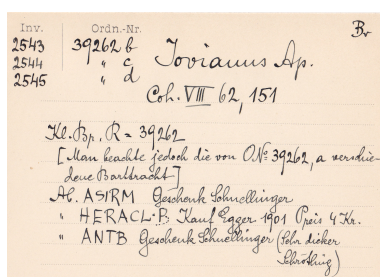 Inv. Ordn.-Nr. Br
2543 39262 b
2544 " c Jovianus Ap.
2545 " d
Coh. VIII 62, 151
Kl. Br, R = 39262
[Man beachte jedoch die von O.№ 39262, a verschie-
dene Barttracht]
At. ASIRM Geschenk Schnellinger
" HERACL·B Kauf Egger 1901 Preis 4 Kr.
" ANTB Geschenk Schnellinger (Sehr dicker
Schrötling)